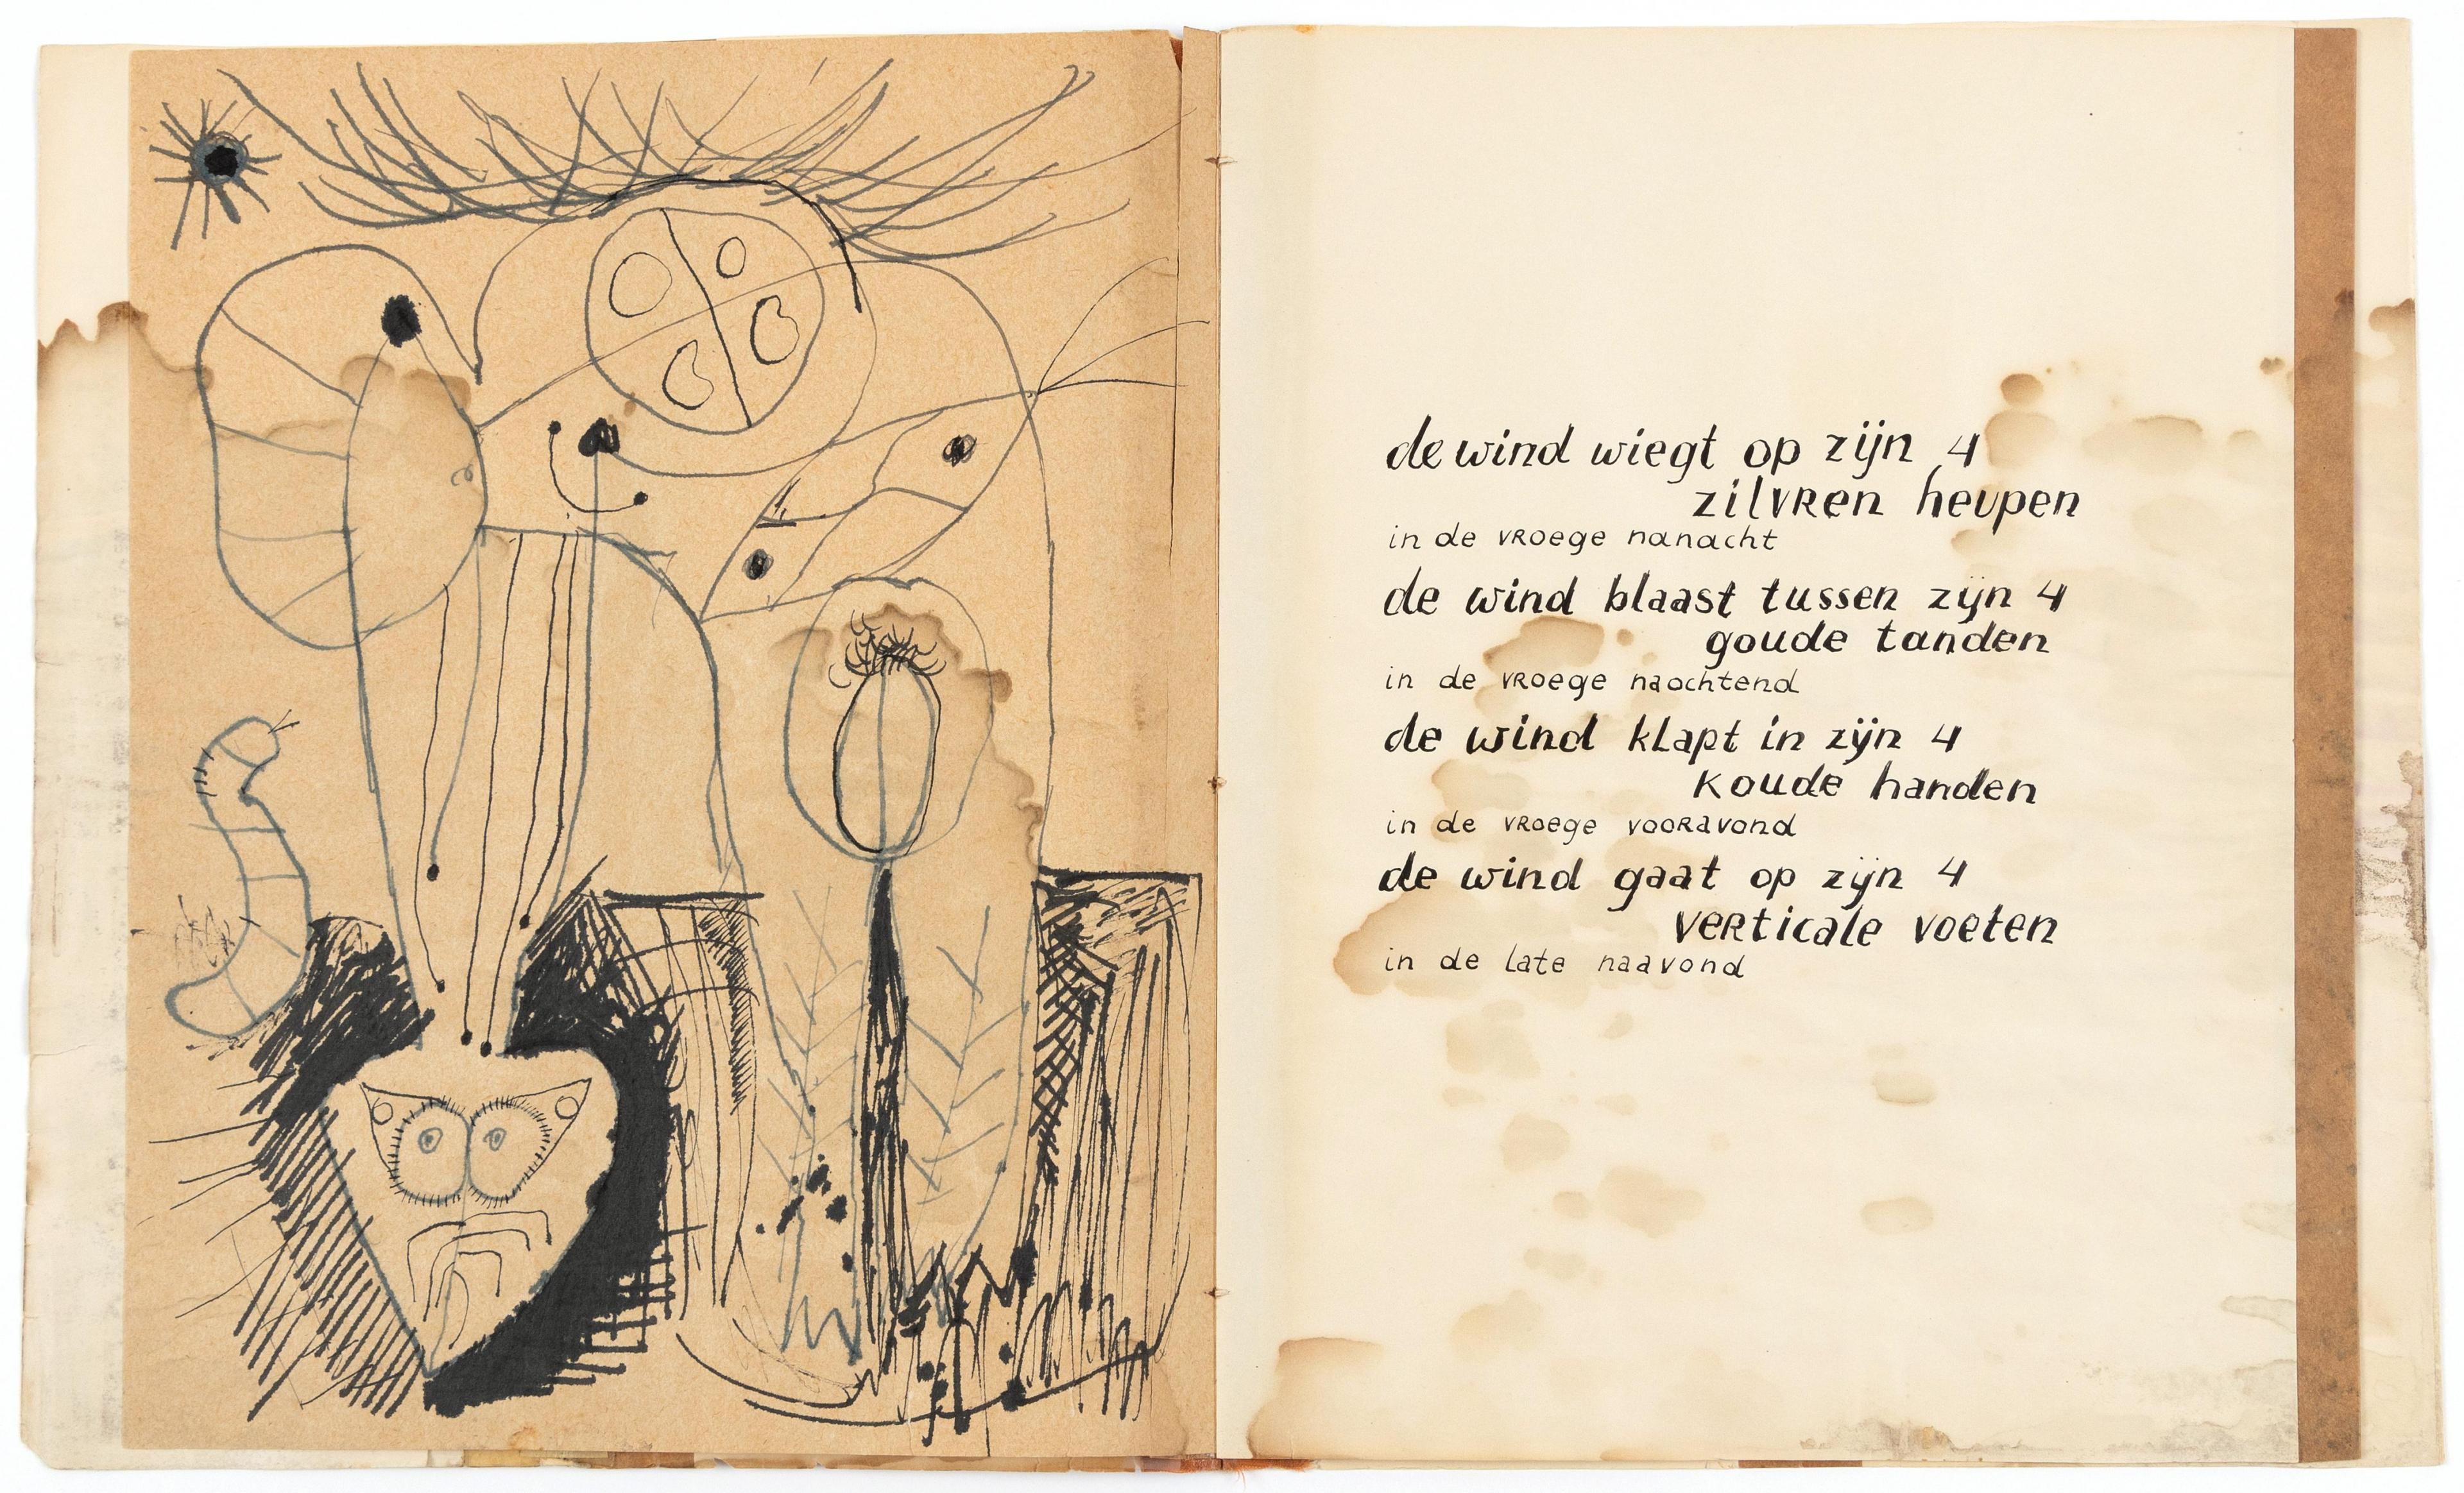 de wind wiegt op zijn 4
zilvren heupen
in de vroege nanacht
de wind blaast tussen zijn 4
goude tanden
in de vroege naochtend
de wind klapt in zijn 4
koude handen
in de vroege vooravond
de wind gaat op zijn 4
verticale voeten
in de late naavond